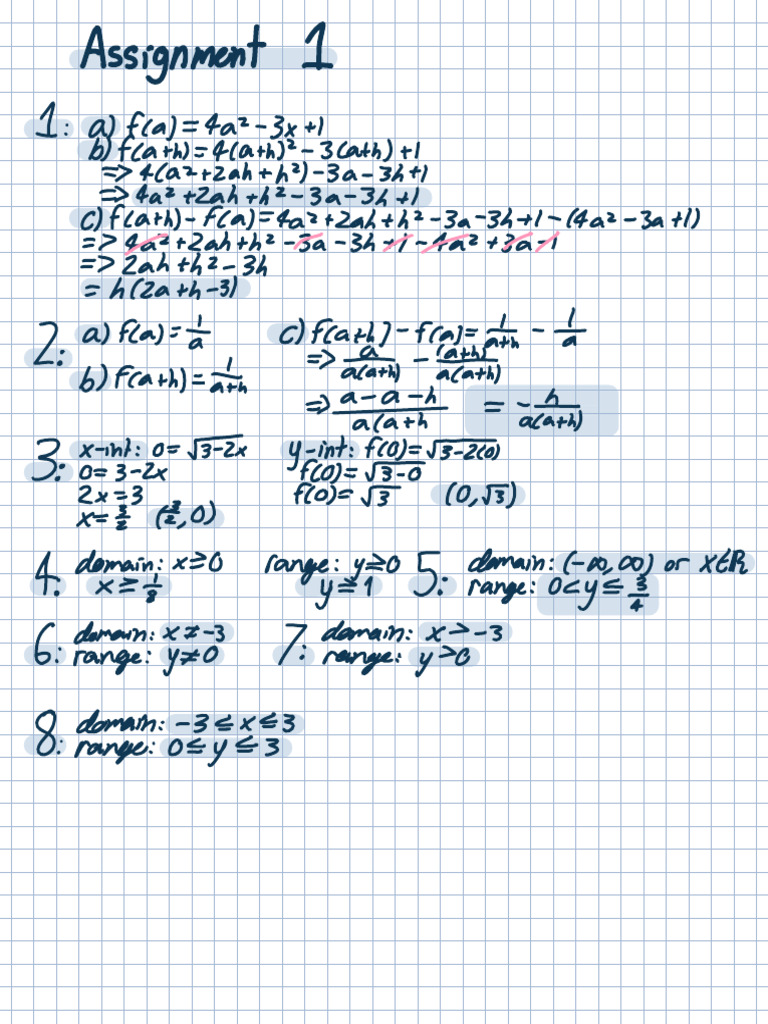 Assignment 1
1: a) f(a) = 4a² - 3x + 1
b) f(a+h) = 4(a+h)² - 3(a+h) + 1
=> 4(a² + 2ah + h²) - 3a - 3h + 1
=> 4a² + 2ah + h² - 3a - 3h + 1
c) f(a+h) - f(a) = 4a² + 2ah + h² - 3a - 3h + 1 - (4a² - 3a + 1)
=> 4a² + 2ah + h² - 3a - 3h + 1 - 4a² + 3a - 1
=> 2ah + h² - 3h
= h(2a + h - 3)
2: a) f(a) = 1/a
b) f(a+h) = 1/(a+h)
c) f(a+h) - f(a) = 1/(a+h) - 1/a
=> a/a(a+h) - (a+h)/a(a+h)
=> a-a-h/a(a+h = -h/a(a+h)
3: x-int: 0 = √3-2x
0 = 3 - 2x
2x = 3
x = 3/2 (3/2, 0)
y-int: f(0) = √3-2(0)
f(0) = √3-0
f(0) = √3 (0, √3)
4: domain: x ≥ 0 range: y ≥ 0
x ≥ 1/8 y ≥ 1
5: domain: (-∞, ∞) or x∈ℝ
range: 0 < y ≤ 3/4
6: domain: x ≠ -3
range: y ≠ 0
7: domain: x > -3
range: y > 0
8: domain: -3 ≤ x ≤ 3
range: 0 ≤ y ≤ 3